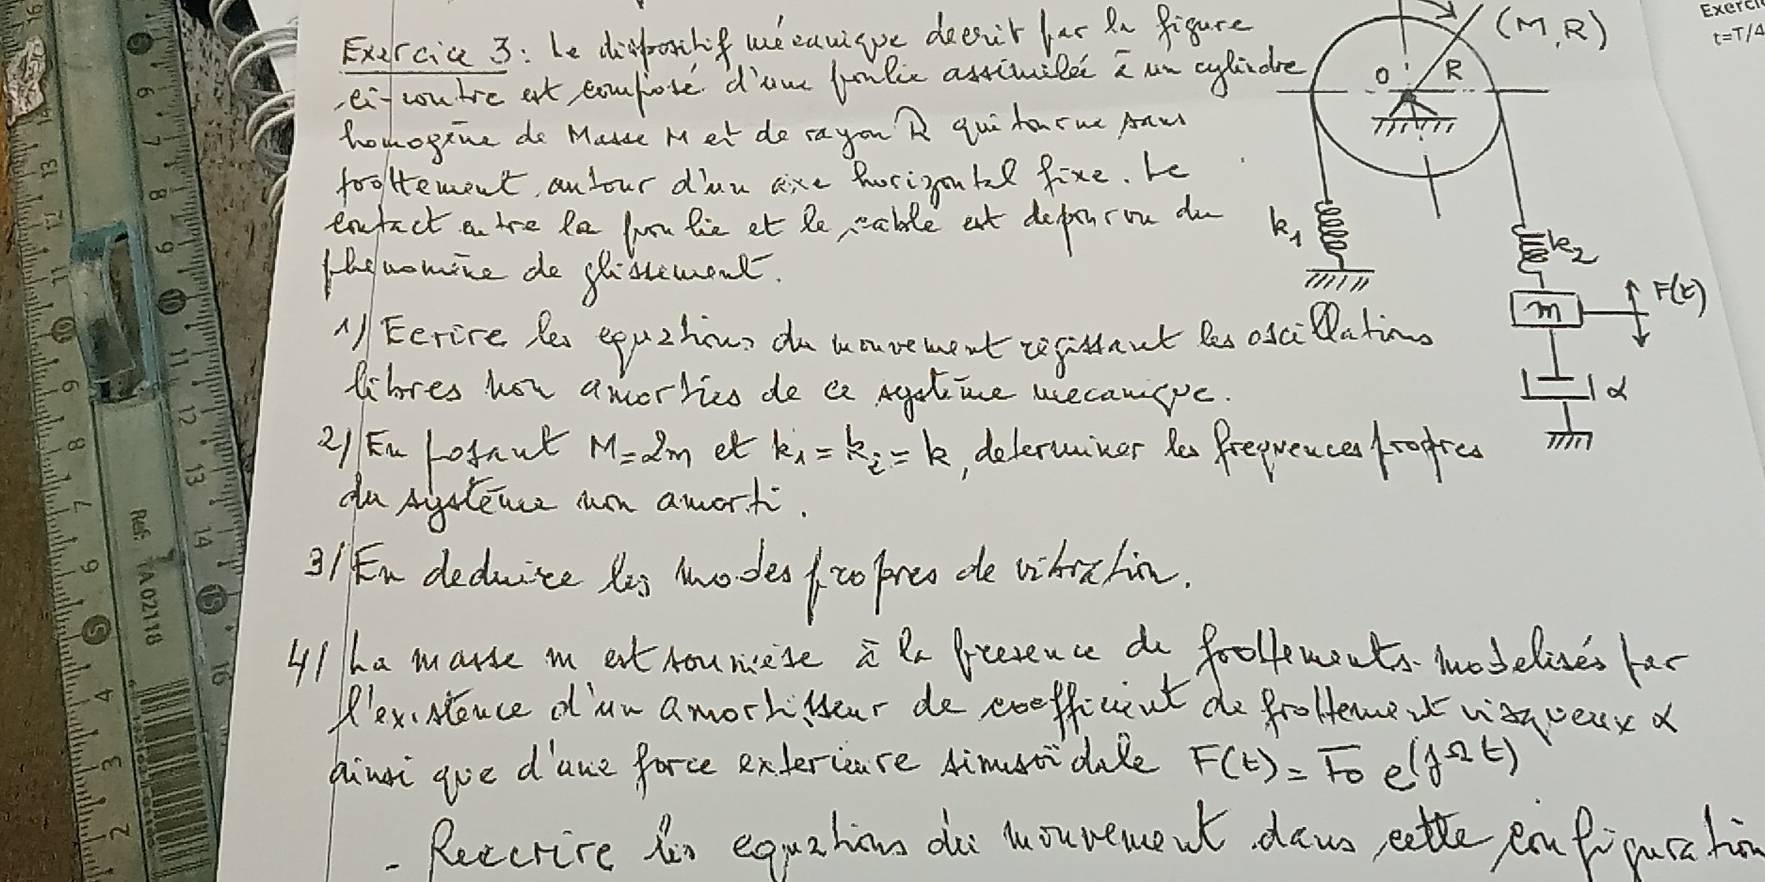 Exercice 3: Le dispositif mécanique decrit par la figure
ci-contre est composé d'une poulie assimilée à un cylindre
homogène de Masse M et de rayon R qui tourne sans
frottement, autour d'un axe horizontal fixe. Le
contact entre la poulie et le cable est depourvu du
phenomène de glissement.
1) Ecrire les equations du mouvement régissant les oscillations
libres non amorties de ce système mecanique.
2) En posant M=2m et k₁=k₂=k, determiner les frequences propres
du système non amorti.
3) En deduire les modes propres de vibration.
4) La masse m est soumise à la presence de frottements modelisés par
l'existence d'un amortisseur de coefficient de frottement visqueux α
ainsi que d'une force exterieure sinusoïdale F(t) = F₀ e(jΩt)
- Reecrire les equations du mouvement dans cette configuration
(M,R)
O
R
k₁
k₂
m
F(t)
α
Exerci
t=T/4
Ref. TA02118